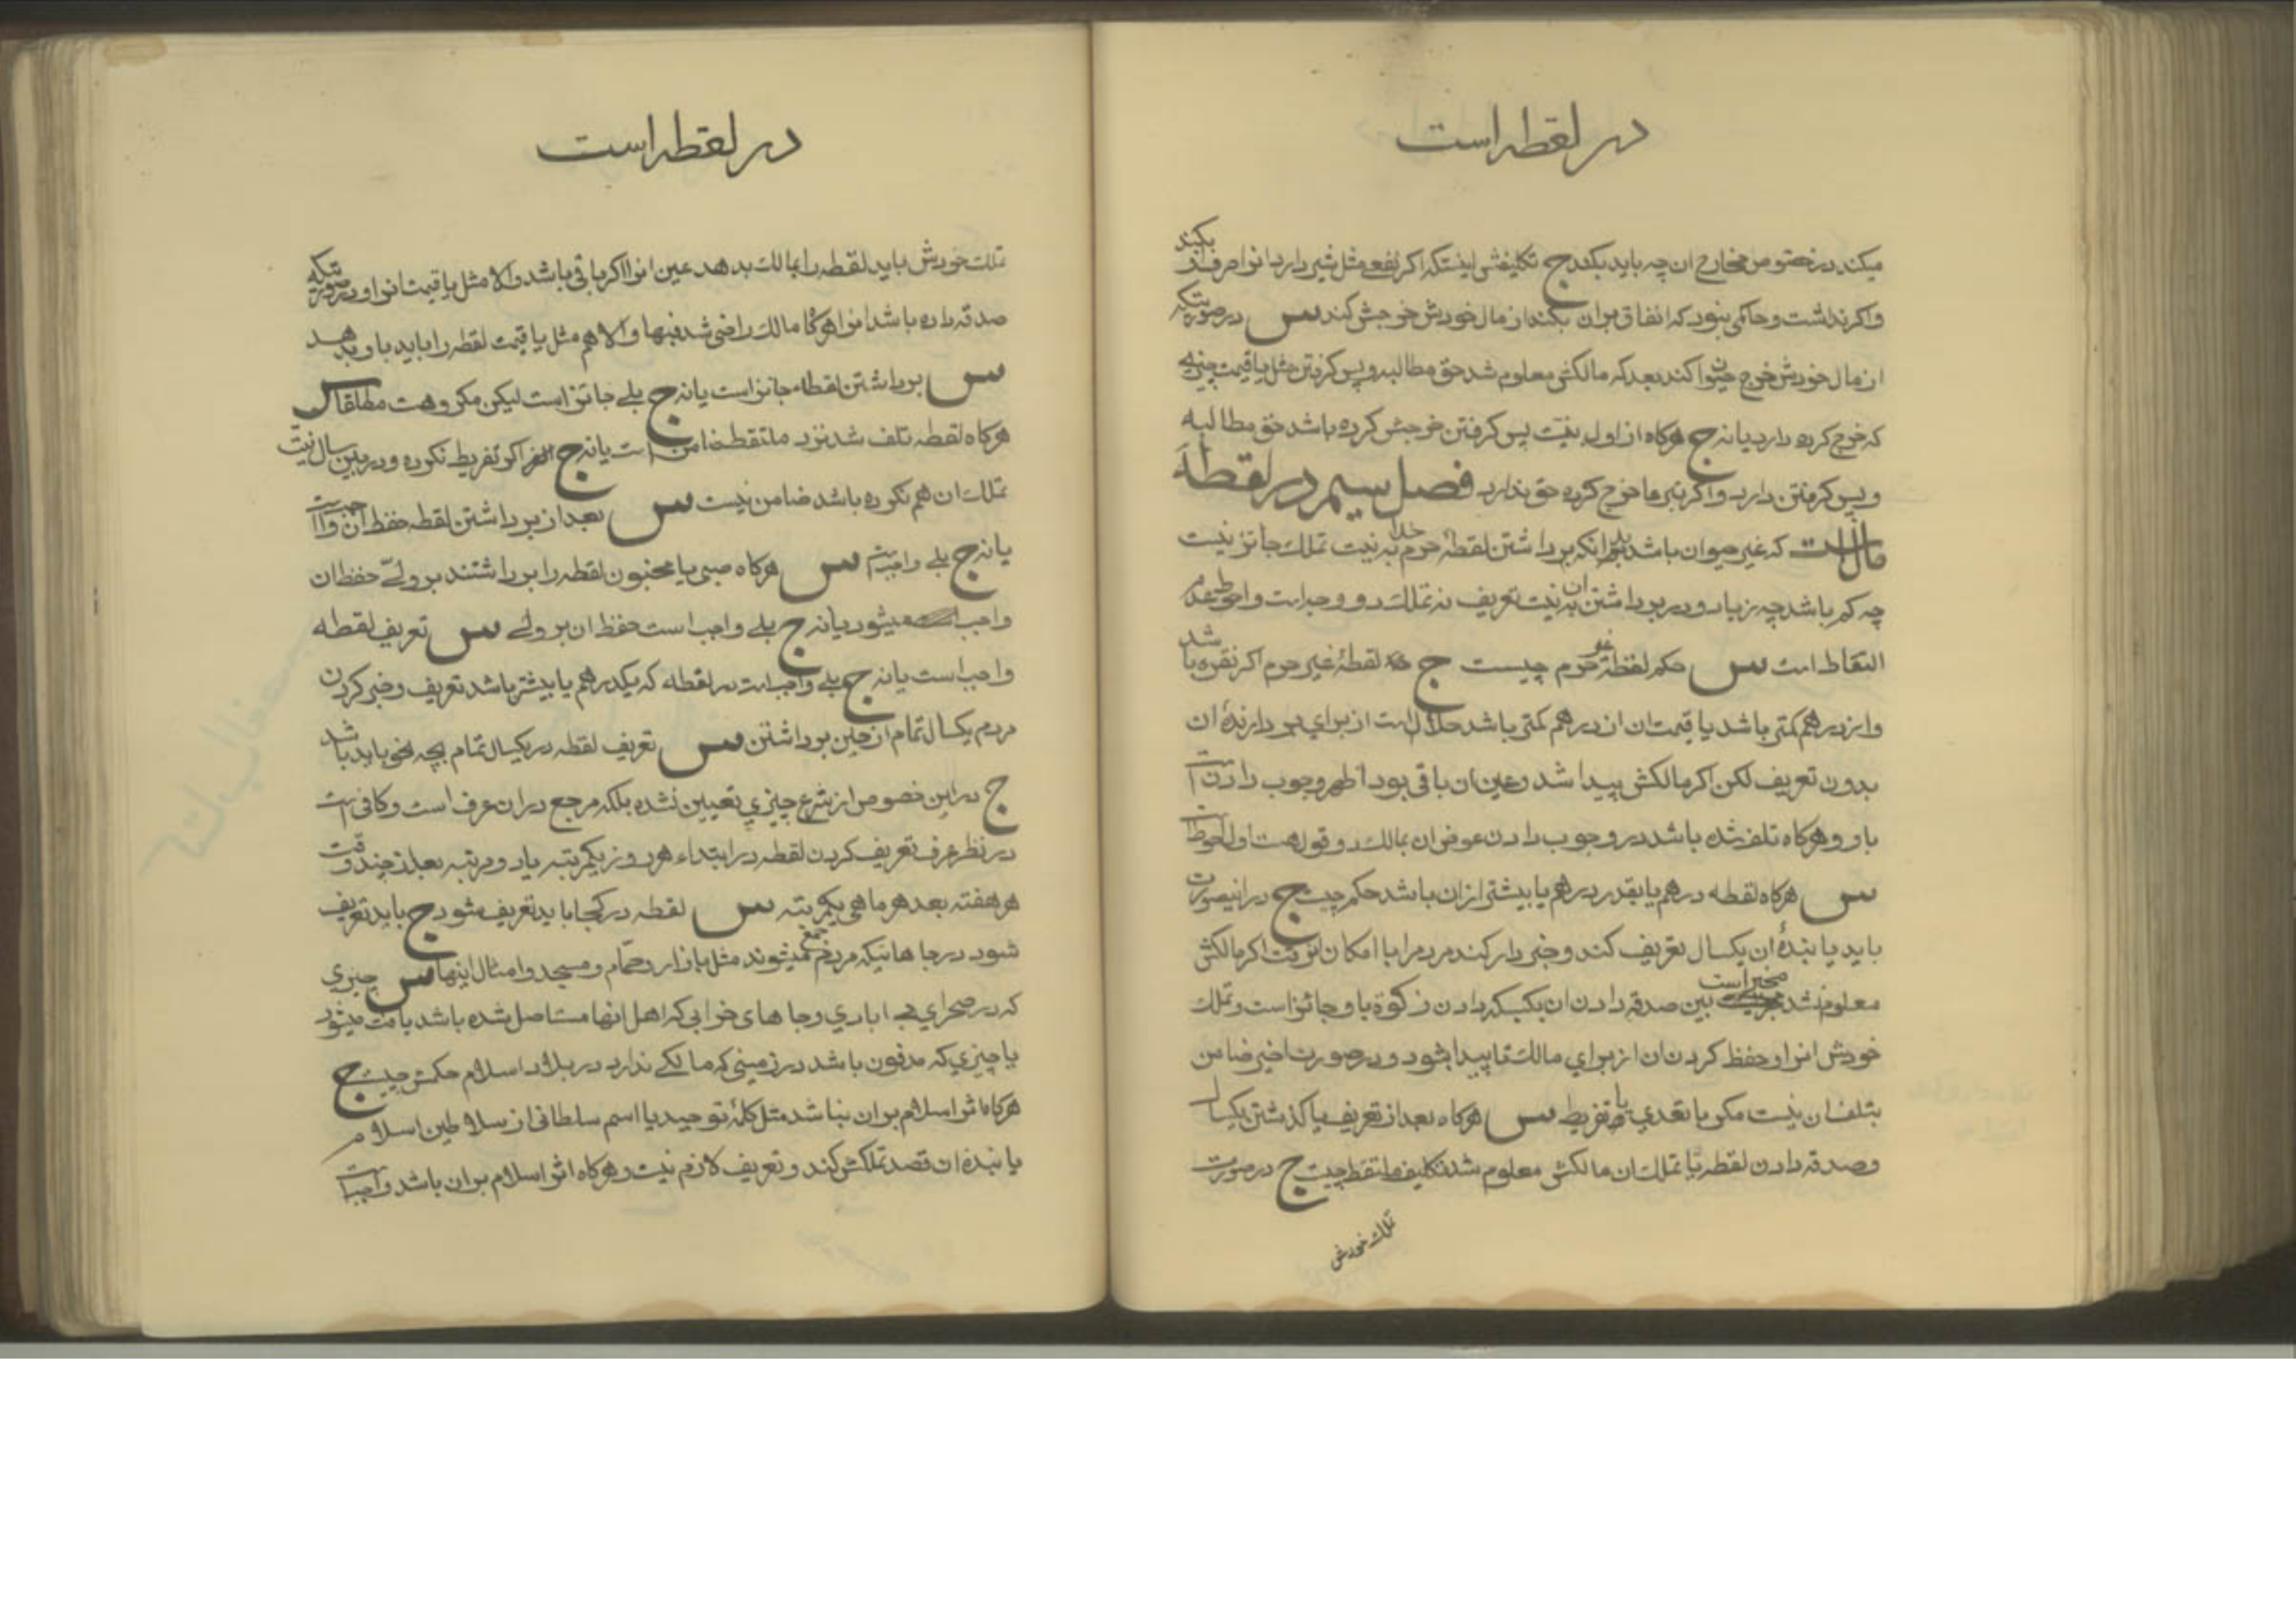 در لقطه است
میکند در خصوص مخارج ان چه باید بکند ج تکلیفش اینستکه اکر نفعی مثل شیر دارد انرا صرف ان بکند
واکر نداشت و حاکمی نبود که انفاق بران بکند از مال خودش خرجش کند س در صورتیکه
از مال خودش خرج حیوان کند بعد که مالکش معلوم شد حق مطالبه و پس کرفتن مثل یا قیمت چیزیکه
که خرج کرده دارد یا نه ج هرکاه از اول بنیت پس کرفتن خرجش کرده باشد حق مطالبه
و پس کرفتن دارد و اکر تبرعا خرج کرده حق ندارد فصل سیم در لقطه
مال است که غیر حیوان باشد بدانکه برداشتن لقطهٔ حرم خدا به نیت تملک جائز نیست
چه کم باشد چه زیاد و در برداشتن ان به نیت تعریف نه تملک دو وجه است واحوط عدم
التقاط است س حکم لقطهٔ غیر حرم چیست ج لقطهٔ غیر حرم اکر نقره باشد
واز درهم کمتر باشد یا قیمت ان از درهم کمتر باشد حلال است از برای بردارندهٔ ان
بدون تعریف لکن اکر مالکش پیدا شد و عین ان باقی بود اظهر وجوب دادن انست
باو و هرکاه تلف شده باشد در وجوب دادن عوض ان بمالک دو قول هست اول احوط است
س هرکاه لقطه درهم یا بقدر درهم یا بیشتر از ان باشد حکم چیست ج در اینصورت
باید یابندهٔ ان یکسال تعریف کند و خبردار کند مردم را با امکان انوقت اکر مالکش
معلوم نشد مخیر است بین صدقه دادن ان بکسیکه دادن زکوة باو جائز است و تملک
خودش انرا و حفظ کردن ان از برای مالک تا پیدا شود و در صورت اخیر ضامن
بتلف ان نیست مکر با تعدی یا تفریط س هرکاه بعد از تعریف یا کذشتن یکسال
و صدقه دادن لقطه یا تملک ان مالکش معلوم شد تکلیف ملتقط چیست ج در صورت
تملک خودش
در لقطه است
تملک خودش باید لقطه را بمالک بدهد عین انرا اکر باقی باشد والا مثل یا قیمت انرا و در صورتیکه
صدقه داده باشد انرا هرکاه مالک راضی شد فبها والا هم مثل یا قیمت لقطه را باید باو بدهد
س برداشتن لقطه جائز است یا نه ج بلی جائز است لیکن مکروهست مطلقا س
هرکاه لقطه تلف شد نزد ملتقط ضامن است یا نه ج اکر تفریط نکرده و در بین سال نیت
تملک ان هم نکرده باشد ضامن نیست س بعد از برداشتن لقطه حفظ ان واجب است
یا نه ج بلی واجبست س هرکاه صبی یا مجنون لقطه را برداشتند بر ولی حفظ ان
واجب میشود یا نه ج بلی واجب است حفظ ان بر ولی س تعریف لقطه
واجب است یا نه ج بلی واجب است در لقطه که یکدرهم یا بیشتر باشد تعریف و خبر کردن
مردم یکسال تمام از حین برداشتن س تعریف لقطه در یکسال تمام بچه نحو باید باشد
ج در این خصوص از شرع چیزی تعیین نشده بلکه مرجع در ان عرف است و کافی است
در نظر عرف تعریف کردن لقطه در ابتداء هر روز یکمرتبه یا دو مرتبه بعد از چند وقت
هر هفته بعد هر ماهی یکمرتبه س لقطه در کجا باید تعریف شود ج باید تعریف
شود در جاهائیکه مردم جمع میشوند مثل بازار و حمام و مسجد و امثال اینها س چیزی
که در صحرای بی ابادی و جاهای خرابی که اهل انها مستاصل شده باشد یافت میشود
یا چیزی که مدفون باشد در زمینی که مالکی ندارد در بلاد اسلام حکمش چیست ج
هرکاه اثر اسلام بر ان نباشد مثل کلمهٔ توحید یا اسم سلطانی از سلاطین اسلام
یابندهٔ ان قصد تملکش کند و تعریف لازم نیست و هرکاه اثر اسلام بر ان باشد واجب است